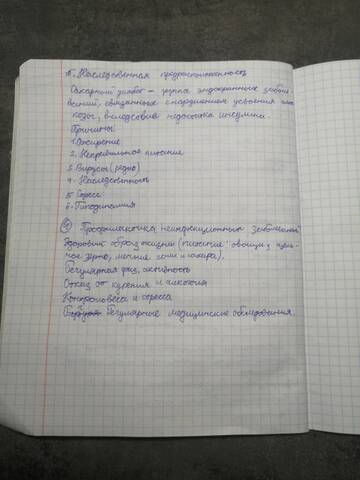 5. Наследственная предрасположенность
Сахарный диабет – группа эндокринных заболе-
ваний, связанных с нарушением усвоения глю-
козы, вследствие недостатка инсулина.
Причины:
1. Ожирение
2. Неправильное питание
3. Вирусы (редко)
4. Наследственность
5. Стресс
6. Гиподинамия
Профилактика неинфекционных заболеваний
Здоровый образ жизни (питание: овощи, цель-
ное зерно, меньше соли и сахара).
Регулярная физ. активность
Отказ от курения и алкоголя
Контроль веса и стресса
Регулярные медицинские обследования.